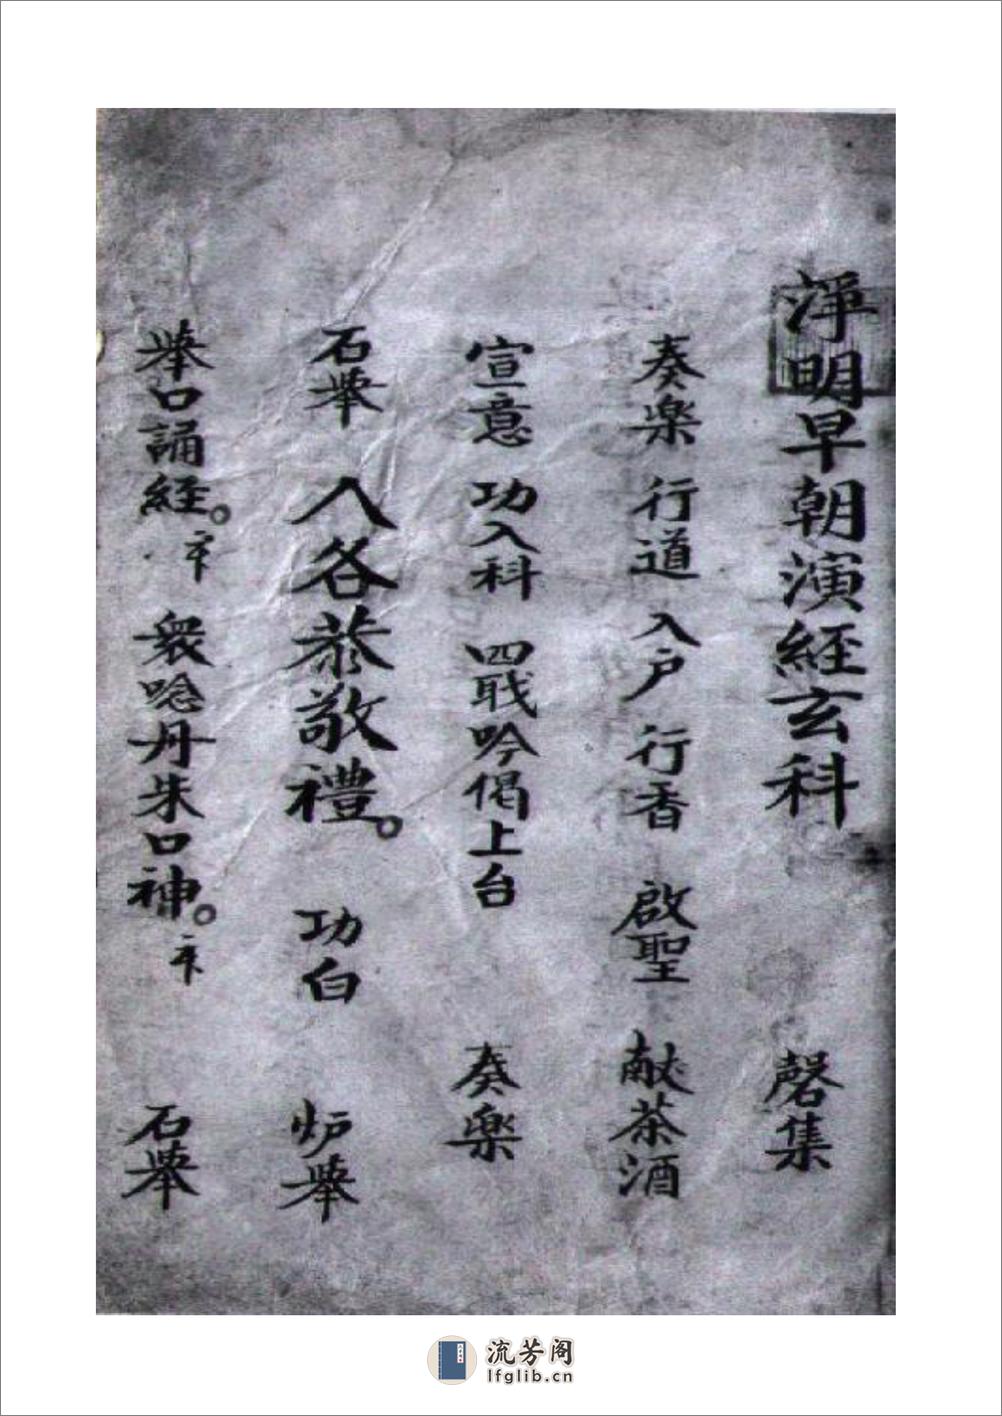 淨明早朝演經玄科 磬集
奏樂 行道 入户 行香 啟聖 献茶酒
宣意 功入科 四戢吟偈上台 奏樂
石舉 人各恭敬禮。 功白 炉舉
舉口誦經。 衆唸丹朱口神。 石舉
流芳阁
lfglib.cn